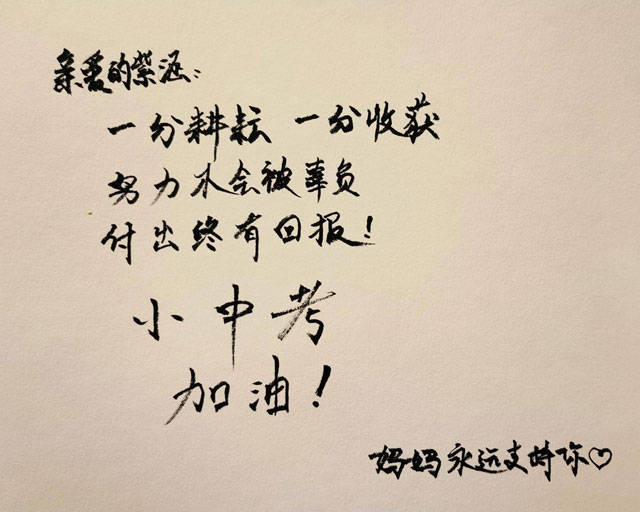 亲爱的紫涵：
一分耕耘 一分收获
努力不会被辜负
付出终有回报！
小中考
加油！
妈妈永远支持你♡